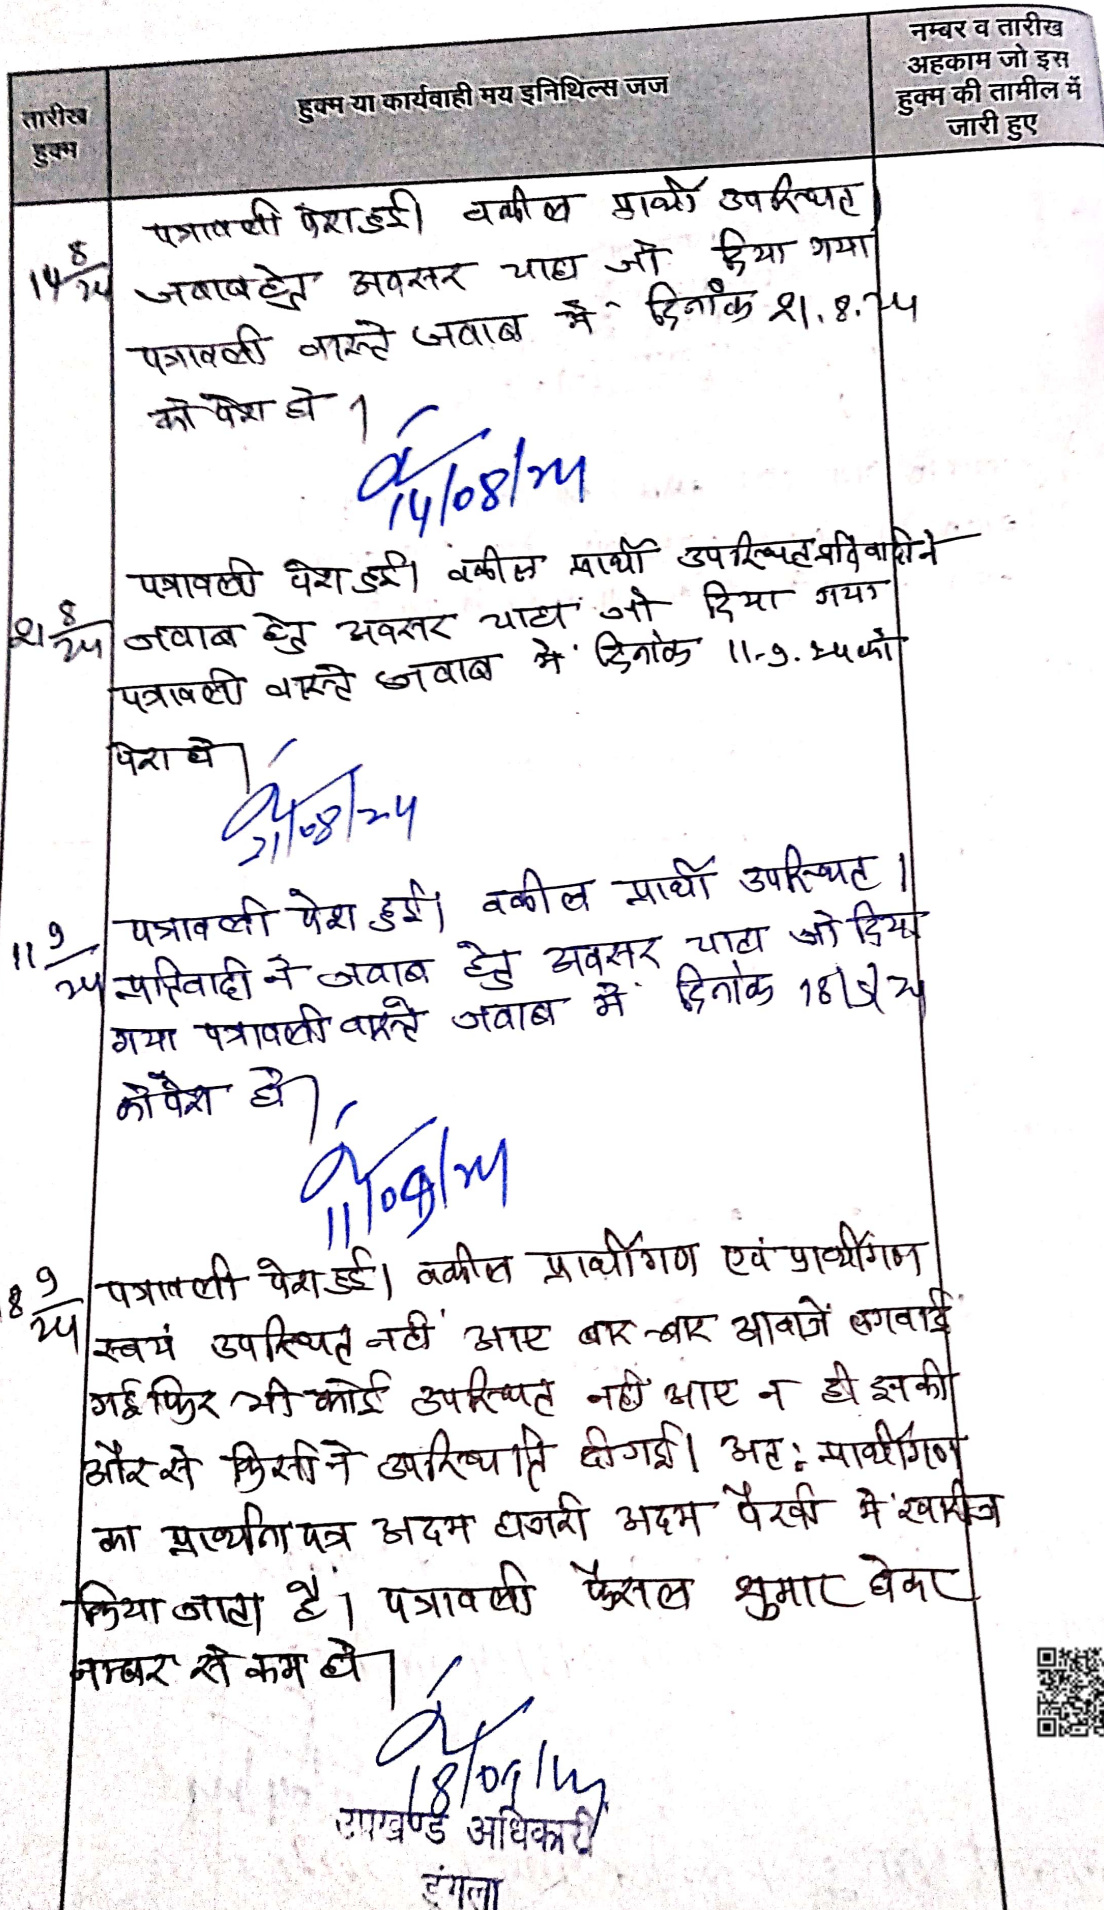 तारीख
हुक्म
हुक्म या कार्यवाही मय इनिथिल्स जज
नम्बर व तारीख
अहकाम जो इस
हुक्म की तामील में
जारी हुए
14 8/24
पत्रावली पेश हुई। वकील प्रार्थी उपस्थित
जबाब हेतु अवसर चाहा जो दिया गया
पत्रावली वास्ते जवाब में दिनांक 21.8.24
को पेश हो।
14/08/24
21 8/24
पत्रावली पेश हुई। वकील प्रार्थी उपस्थित प्रतिवादी ने
जवाब हेतु अवसर चाहा जो दिया गया
पत्रावली वास्ते जवाब में दिनांक 11-9.24 को
पेश हो।
21/08/24
11 9/24
पत्रावली पेश हुई। वकील प्रार्थी उपस्थित।
प्रतिवादी ने जवाब हेतु अवसर चाहा जो दिया
गया पत्रावली वास्ते जवाब में दिनांक 18/9/24
को पेश हो।
11/09/24
8 9/24
पत्रावली पेश हुई। वकील प्रार्थीगण एवं प्रार्थीगण
स्वयं उपस्थित नहीं आए बार-बार आवाजें लगवाई
गई फिर भी कोई उपस्थित नहीं आए न ही इनकी
और से किसी ने उपस्थिति दी गई। अतः प्रार्थीगण
का प्रार्थना पत्र अदम हाजरी अदम पैरवी में खारीज
किया जाता है। पत्रावली फैसल शुमार होकर
नम्बर से कम हो।
18/09/24
उपखण्ड अधिकारी
डूंगला